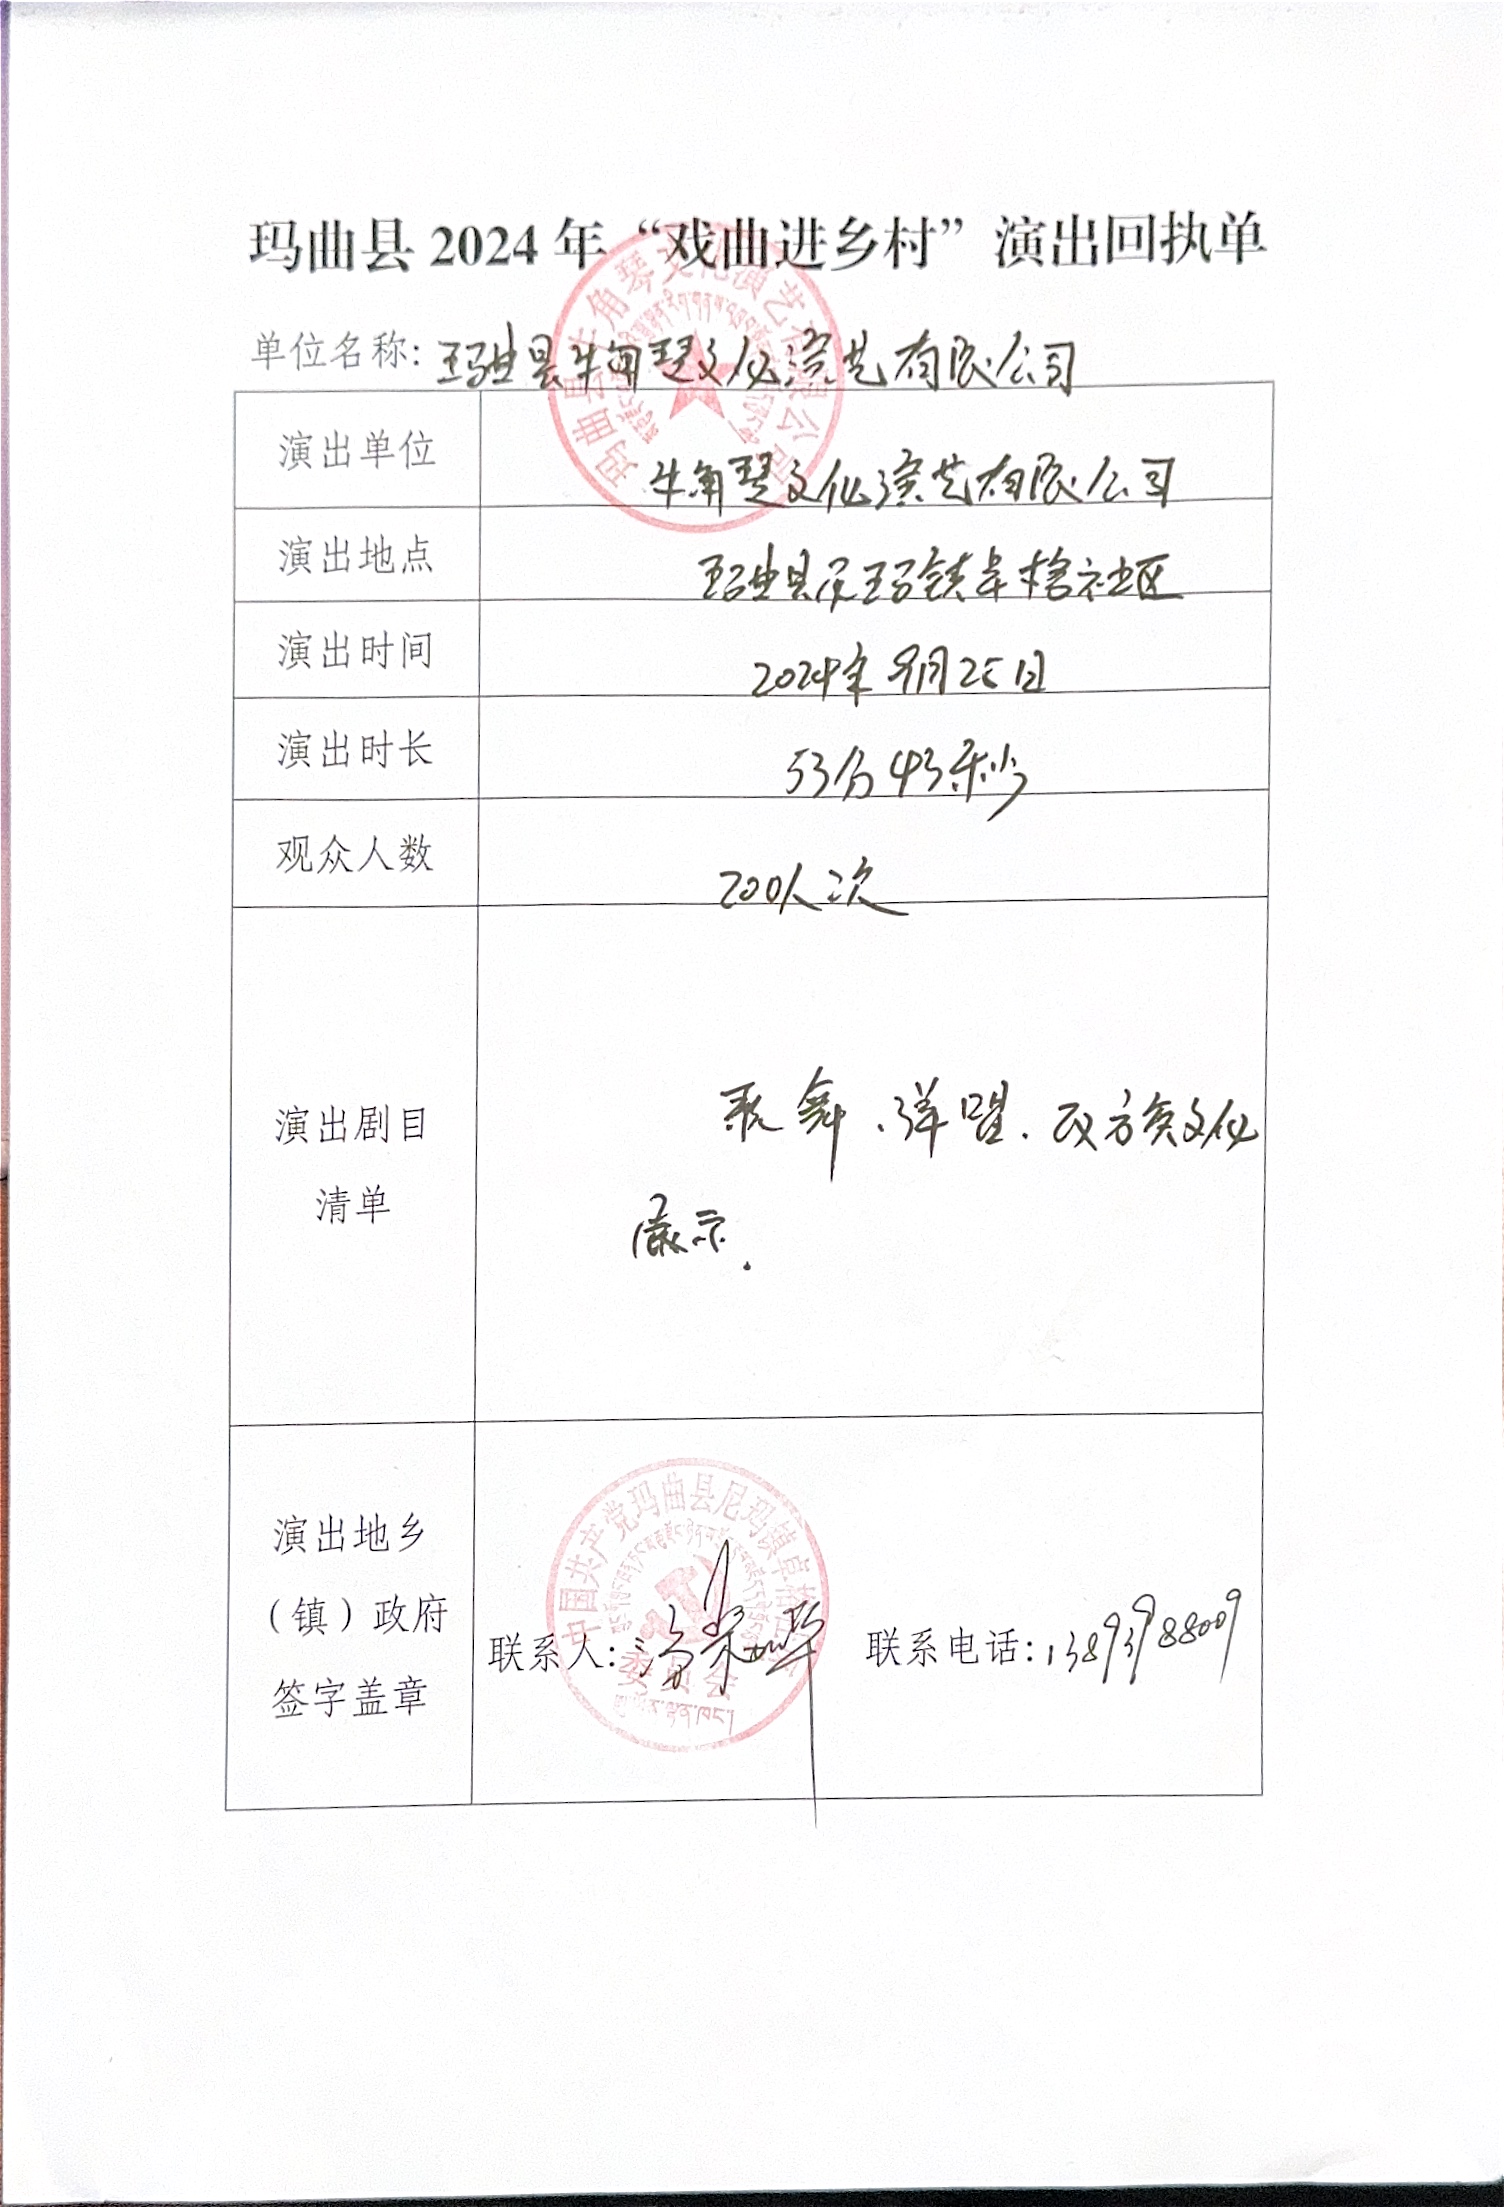 玛曲县 2024 年“戏曲进乡村”演出回执单
单位名称：玛曲县牛角琴文化演艺有限公司
演出单位
牛角琴文化演艺有限公司
演出地点
玛曲县尼玛镇卓格社区
演出时间
2024年9月25日
演出时长
53分43秒
观众人数
200人次
演出剧目
清单
歌舞、弹唱、民族文化
展示.
演出地乡
（镇）政府
签字盖章
联系人:
联系电话:13893988009
玛曲县牛角琴文化演艺有限公司
中国共产党玛曲县尼玛镇卓格社区
委员会